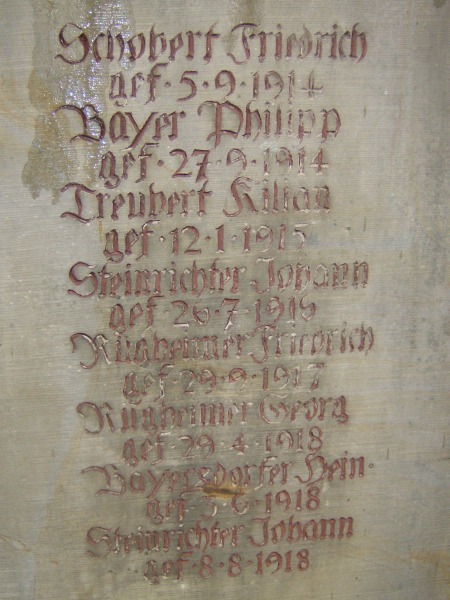 Schobert Friedrich
gef· 5·9·1914
Bayer Philipp
gef·27·9·1914
Treubert Kilian
gef·12·1·1915
Steinrichter Johann
gef·26·7·1916
Rügheimer Friedrich
gef·29·9·1917
Rügheimer Georg
gef·29·4·1918
Bayersdorfer Hein·
gef· ·6·1918
Steinrichter Johann
gef·8·8·1918